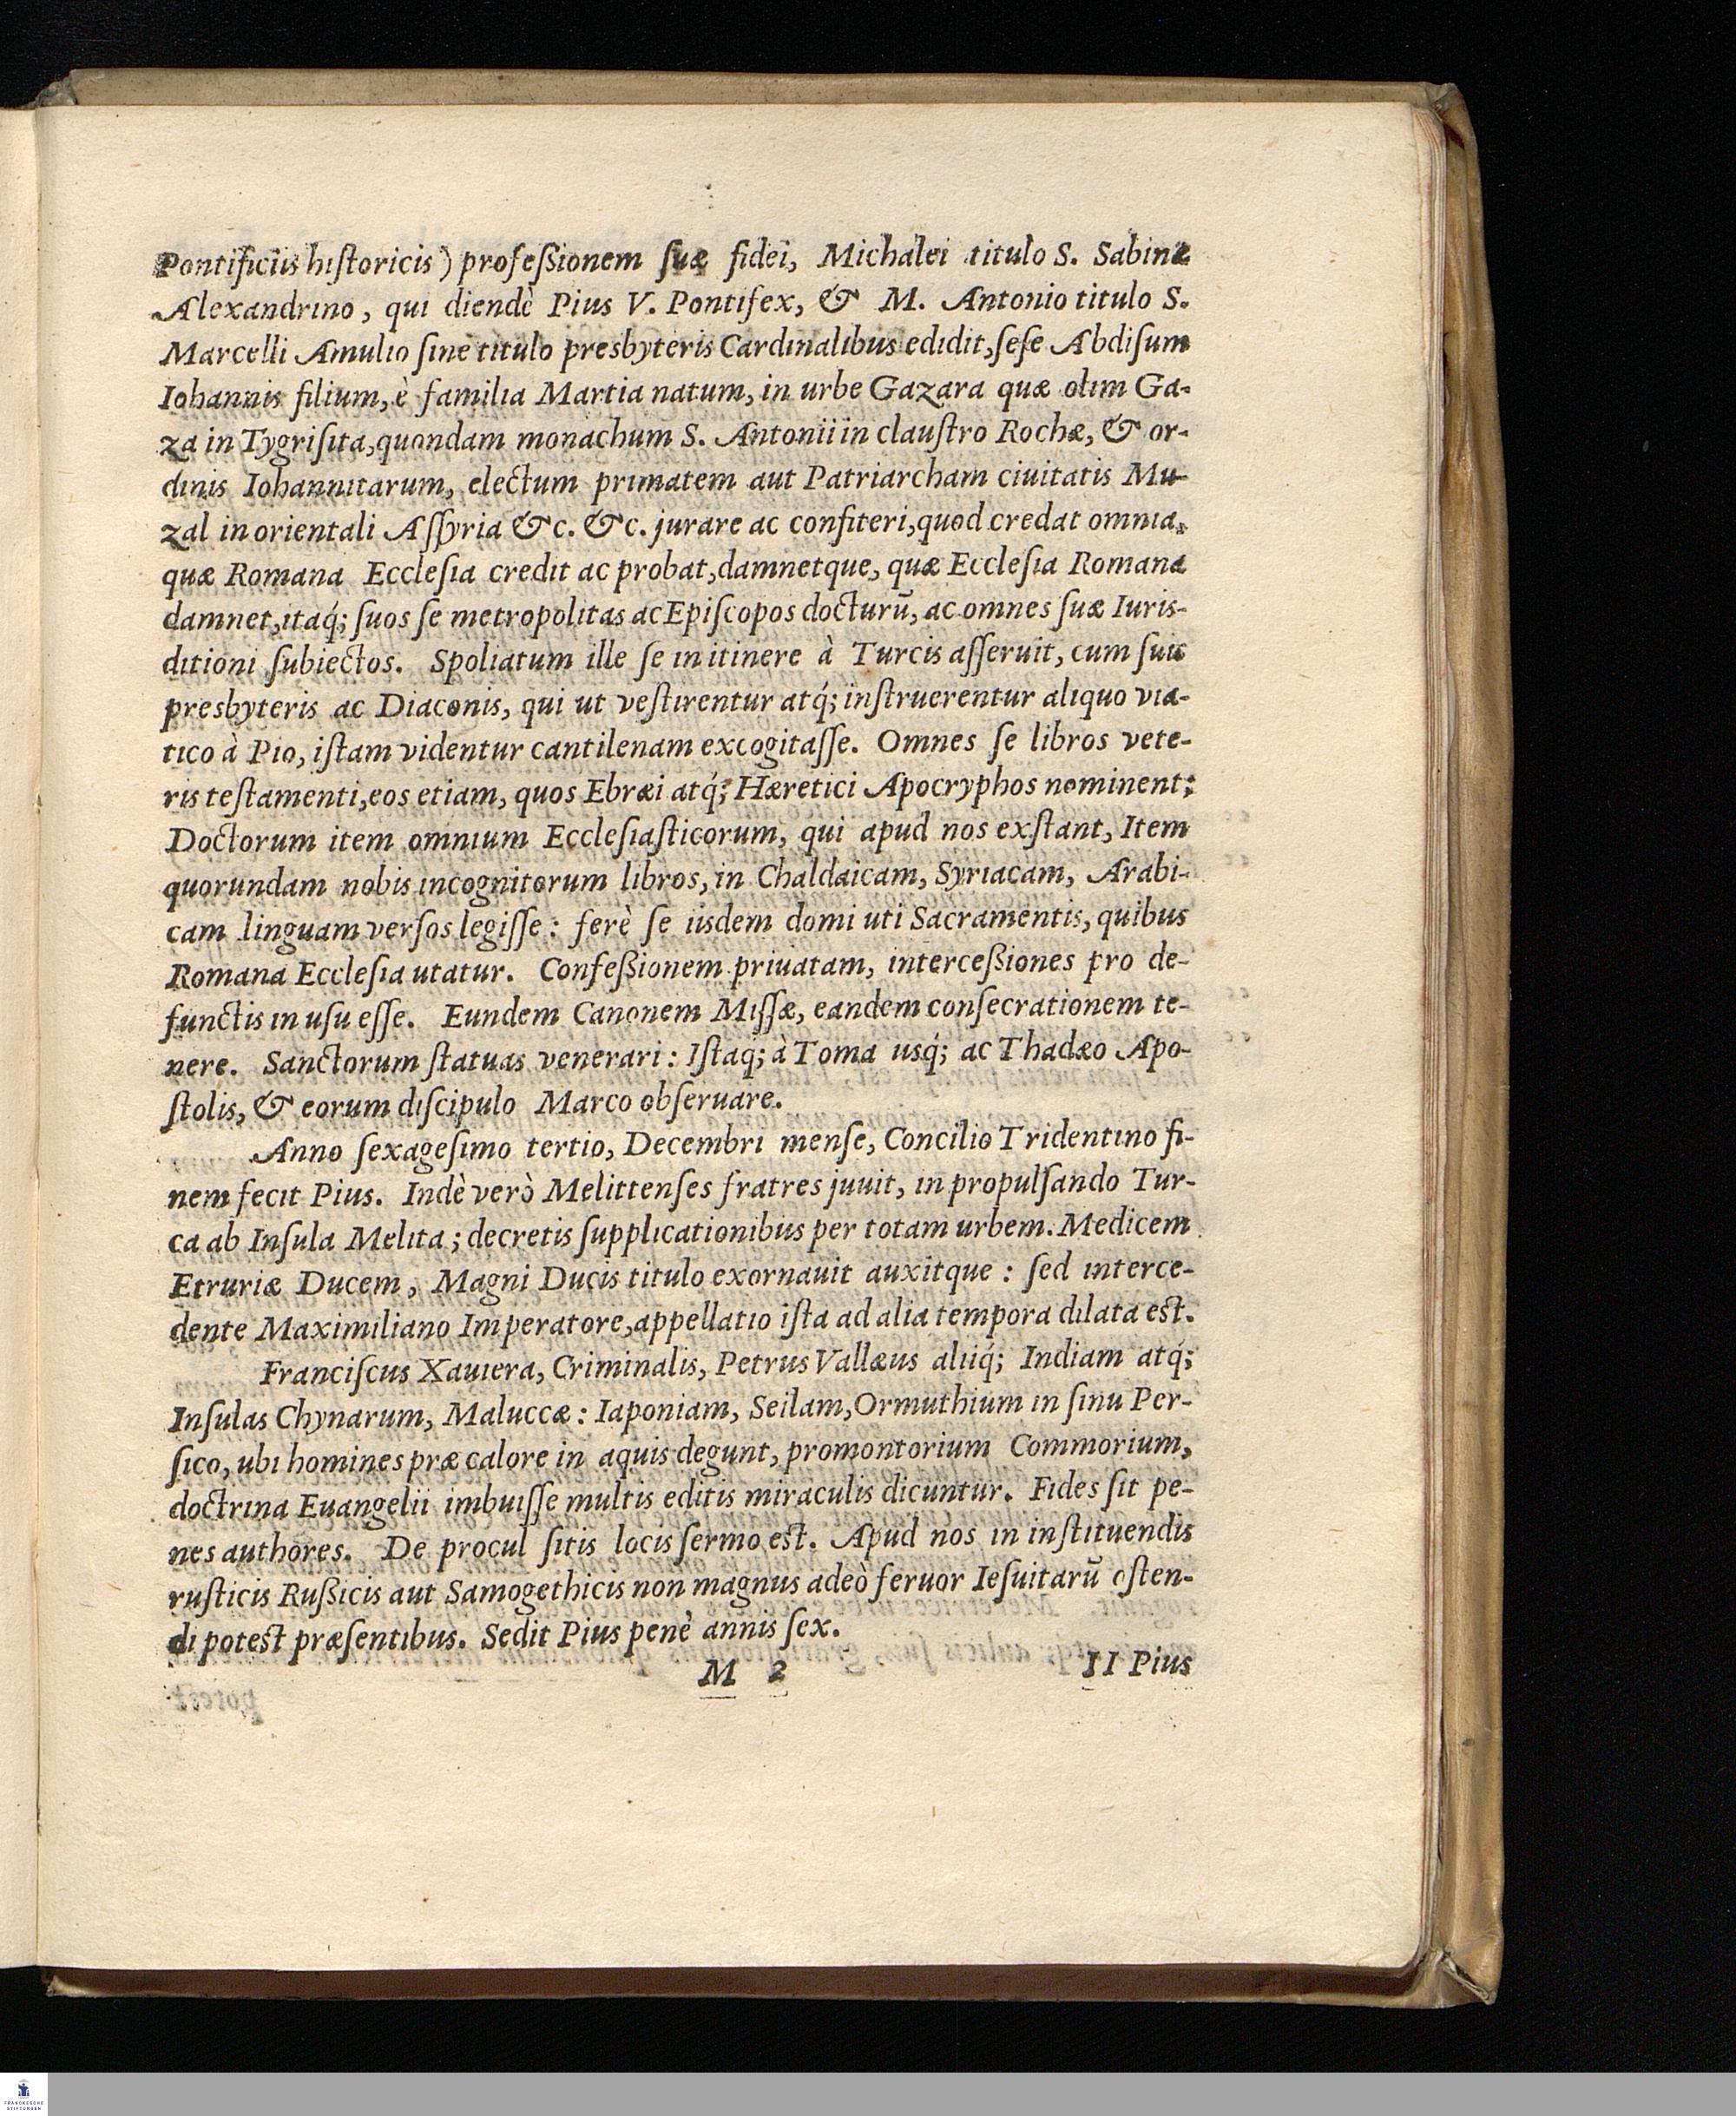 Pontificiis hiſtoricis) profeſsionem ſuæ fidei, Michaelei titulo S. Sabinæ
Alexandrino, qui diendè Pius V. Pontifex, & M. Antonio titulo S.
Marcelli Amulio ſine titulo presbyteris Cardinalibus edidit, ſeſe Abdiſum
Iohannis filium, è familia Martia natum, in urbe Gazara quæ olim Ga-
za in Tygri ſita, quondam monachum S. Antonii in clauſtro Rochæ, & or-
dinis Iohannitarum, electum primatem aut Patriarcham ciuitatis Mu-
zal in orientali Aſſyria &c. &c. jurare ac confiteri, quod credat omnia,
quæ Romana Eccleſia credit ac probat, damnetque, quæ Eccleſia Romana
damnet, itaq́; ſuos ſe metropolitas ac Epiſcopos docturũ, ac omnes ſuæ Iuris-
ditioni ſubiectos. Spoliatum ille ſe in itinere à Turcis aſſeruit, cum ſuis
presbyteris ac Diaconis, qui ut veſtirentur atq́; inſtruerentur aliquo via-
tico à Pio, iſtam videntur cantilenam excogitaſſe. Omnes ſe libros vete-
ris teſtamenti, eos etiam, quos Ebræi atq́; Hæretici Apocryphos nominent;
Doctorum item omnium Eccleſiaſticorum, qui apud nos exſtant, Item
quorundam nobis incognitorum libros, in Chaldaicam, Syriacam, Arabi-
cam linguam verſos legiſſe: ferè ſe iisdem domi uti Sacramentis, quibus
Romana Eccleſia utatur. Confeſsionem priuatam, interceſsiones pro de-
functis in uſu eſſe. Eundem Canonem Miſſæ, eandem conſecrationem te-
nere. Sanctorum ſtatuas venerari: Iſtaq́; à Toma usq́; ac Thadæo Apo-
ſtolis, & eorum diſcipulo Marco obſeruare.
Anno ſexageſimo tertio, Decembri menſe, Concilio Tridentino fi-
nem fecit Pius. Indè verò Melittenſes fratres juuit, in propulſando Tur-
ca ab Inſula Melita; decretis ſupplicationibus per totam urbem. Medicem
Etruriæ Ducem, Magni Ducis titulo exornauit auxitque: ſed interce-
dente Maximiliano Imperatore, appellatio iſta ad alia tempora dilata eſt.
Franciſcus Xauiera, Criminalis, Petrus Vallæus aliiq́; Indiam atq́;
Inſulas Chynarum, Maluccæ: Iaponiam, Seilam, Ormuthium in ſinu Per-
ſico, ubi homines præ calore in aquis degunt, promontorium Commorium,
doctrina Euangelii imbuiſſe multis editis miraculis dicuntur. Fides ſit pe-
nes authores. De procul ſitis locis ſermo eſt. Apud nos in inſtituendis
ruſticis Ruſsicis aut Samogethicis non magnus adeò feruor Ieſuitarũ oſten-
di poteſt præſentibus. Sedit Pius penè annis ſex.
M 2 II Pius
FRANCKESCHE
STIFTUNGEN